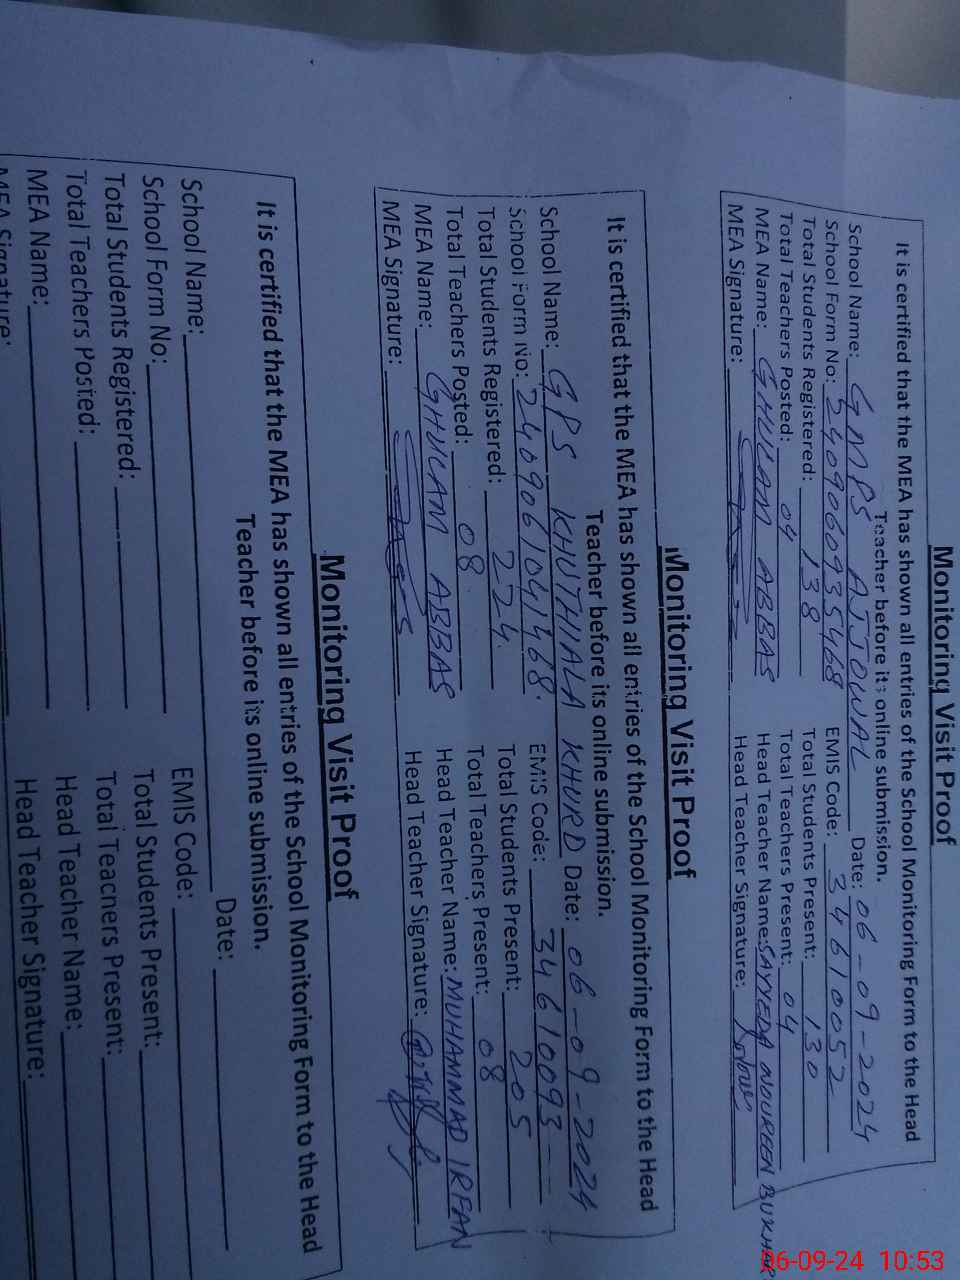 Monitoring Visit Proof
It is certified that the MEA has shown all entries of the School Monitoring Form to the Head
Teacher before its online submission.
School Name: GMPS AJJOWAL Date: 06-09-2024
School Form No: 2409060935468 EMIS Code: 34610052
Total Students Registered: 138 Total Students Present: 130
Total Teachers Posted: 04 Total Teachers Present: 04
MEA Name: GHULAM ABBAS Head Teacher Name: SAYYEDA NOUREEN BUKHARI
MEA Signature: Head Teacher Signature:
Monitoring Visit Proof
It is certified that the MEA has shown all entries of the School Monitoring Form to the Head
Teacher before its online submission.
School Name: GPS KHUTHIALA KHURD Date: 06-09-2024
School Form No: 2409061041468. EMIS Code: 34610093
Total Students Registered: 224 Total Students Present: 205
Total Teachers Posted: 08 Total Teachers Present: 08
MEA Name: GHULAM ABBAS Head Teacher Name: MUHAMMAD IRFAN
MEA Signature: Head Teacher Signature:
Monitoring Visit Proof
It is certified that the MEA has shown all entries of the School Monitoring Form to the Head
Teacher before its online submission.
School Name: Date:
School Form No: EMIS Code:
Total Students Registered: Total Students Present:
Total Teachers Posted: Total Teachers Present:
MEA Name: Head Teacher Name:
MEA Signature: Head Teacher Signature:
06-09-24 10:53